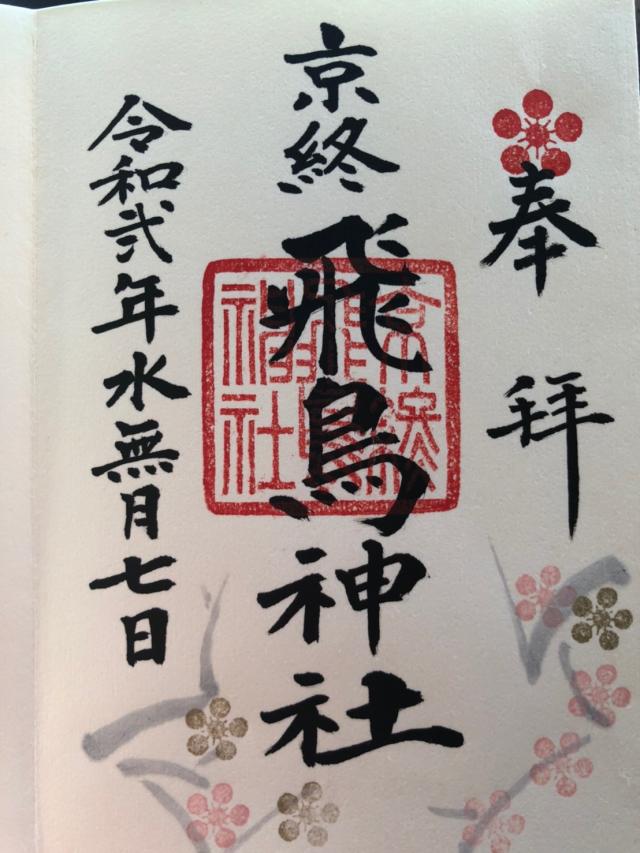 奉拝
京終飛鳥神社
京終飛鳥神社
令和弐年水無月七日